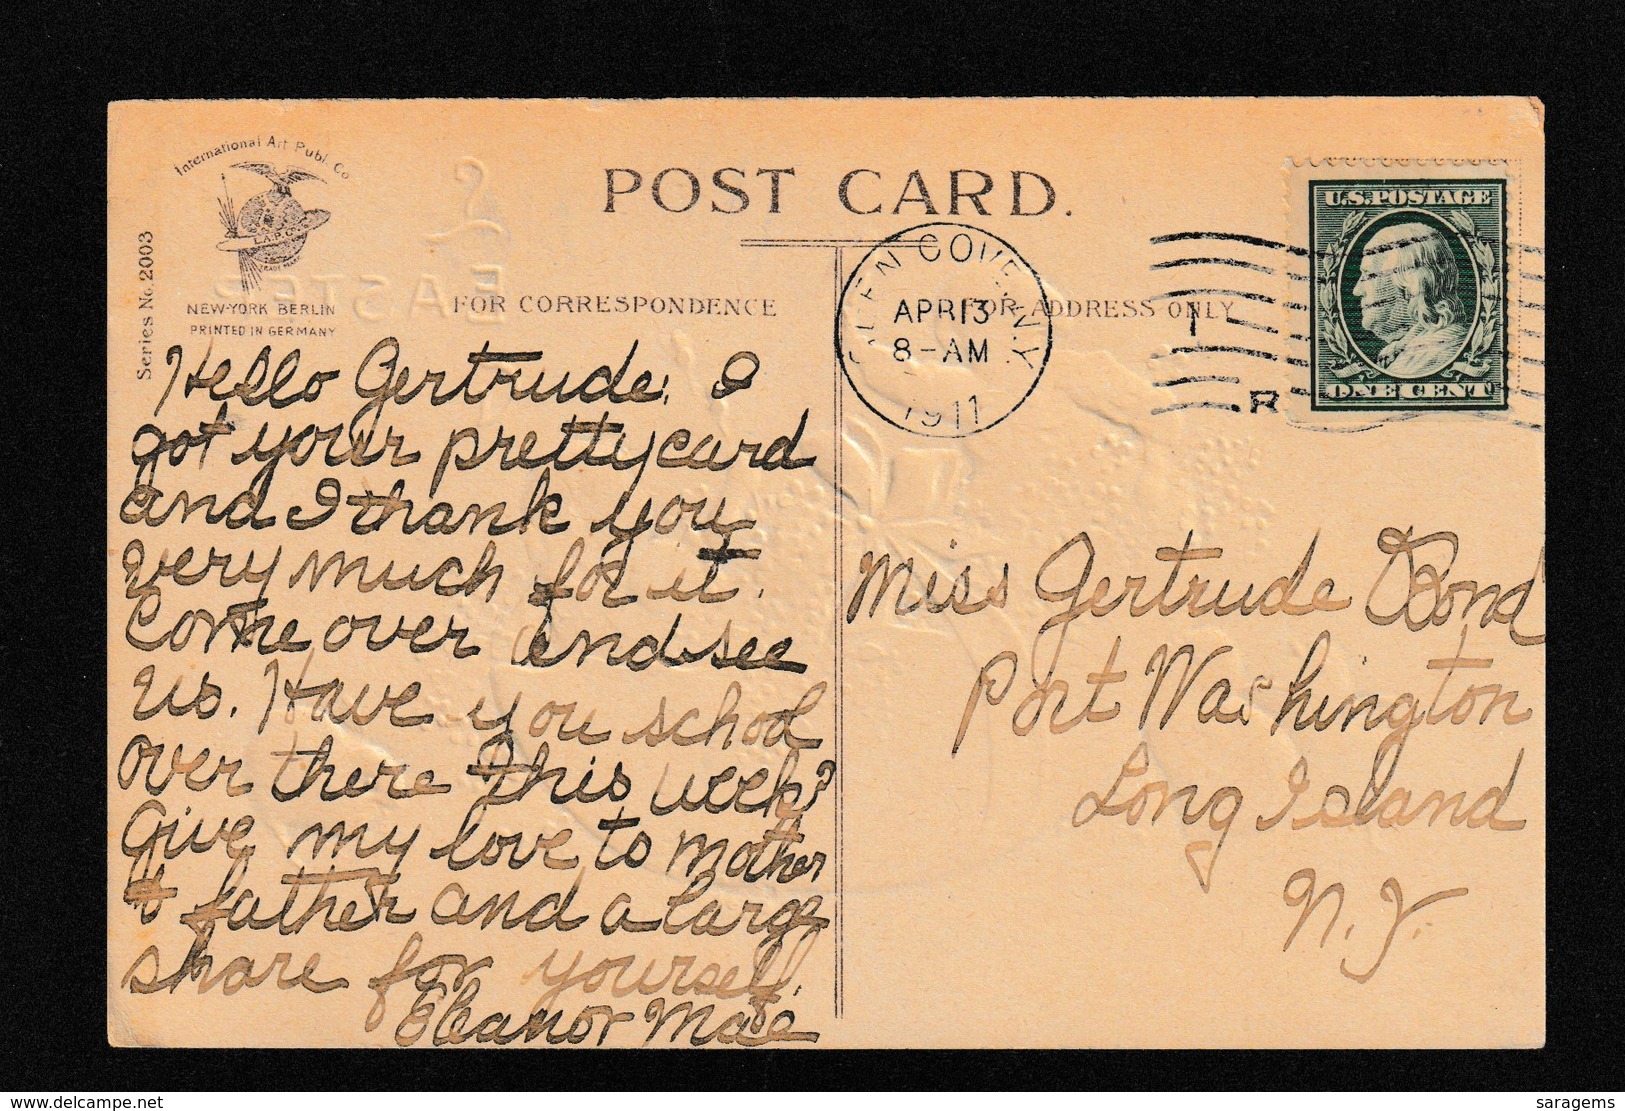 International Art Publ. Co
I.A.P.Co.
TRADE MARK
NEW-YORK BERLIN
PRINTED IN GERMANY
Series No. 2003
POST CARD.
EASTER
FOR CORRESPONDENCE
FOR ADDRESS ONLY
GLEN COVE N.Y.
APR 13
8-AM
1911
1
R
U.S. POSTAGE
ONE CENT
Hello Gertrude. I
got your pretty card
and I thank you
very much for it.
Come over and see
us. Have you school
over there this week?
Give my love to mother
& father and a large
share for yourself.
Eleanor Mae
Miss Gertrude Bond
Port Washington
Long Island
N.Y.
delcampe.net
saragems